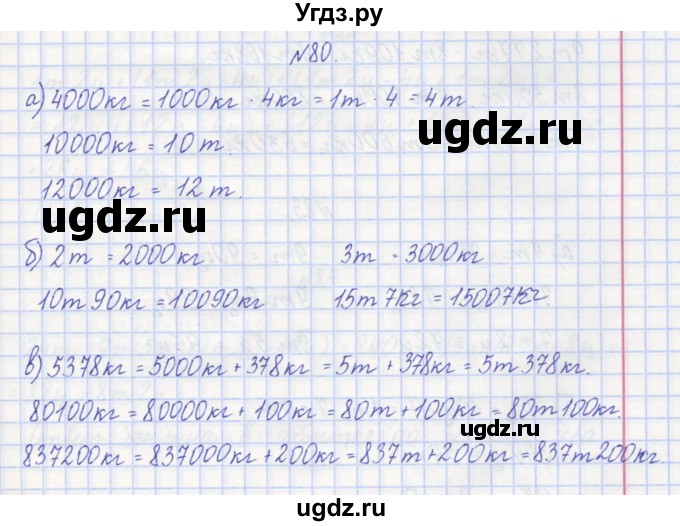 Угдз.ру
№80.
а) 4000кг = 1000кг · 4кг = 1т · 4 = 4т.
ugdz.ru
10000кг = 10т.
12000кг = 12т.
ugdz.ru
б) 2т = 2000кг 3т - 3000кг
10т 90кг = 10090кг 15т 7кг = 15007кг.
в) 5378кг = 5000кг + 378кг = 5т + 378кг = 5т 378кг.
80100кг = 80000кг + 100кг = 80т + 100кг = 80т 100кг.
ugdz.ru
837200кг = 837000кг + 200кг = 837т + 200кг = 837т 200кг.
ugdz.ru